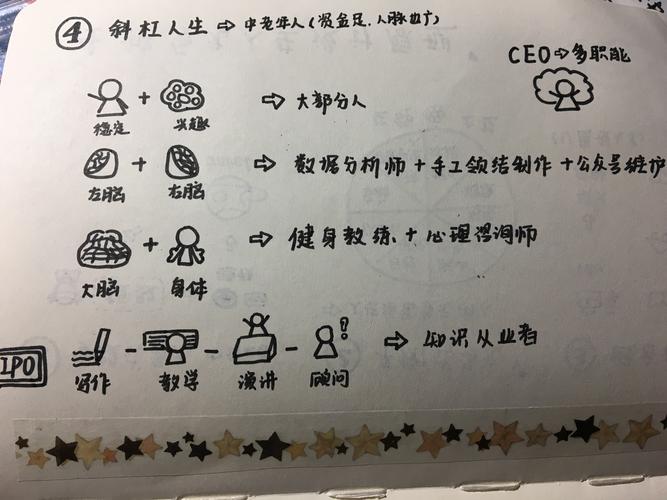 ④ 斜杠人生 ⇨ 中老年人(资金足,人脉广)
CEO ⇨ 多职能
+ ⇨ 大部分人
稳定 兴趣
+ ⇨ 数据分析师 + 手工领结制作 + 公众号维护
左脑 右脑
+ ⇨ 健身教练 + 心理咨询师
大脑 身体
IPO - - - ⇨ 知识从业者
写作 教学 演讲 顾问